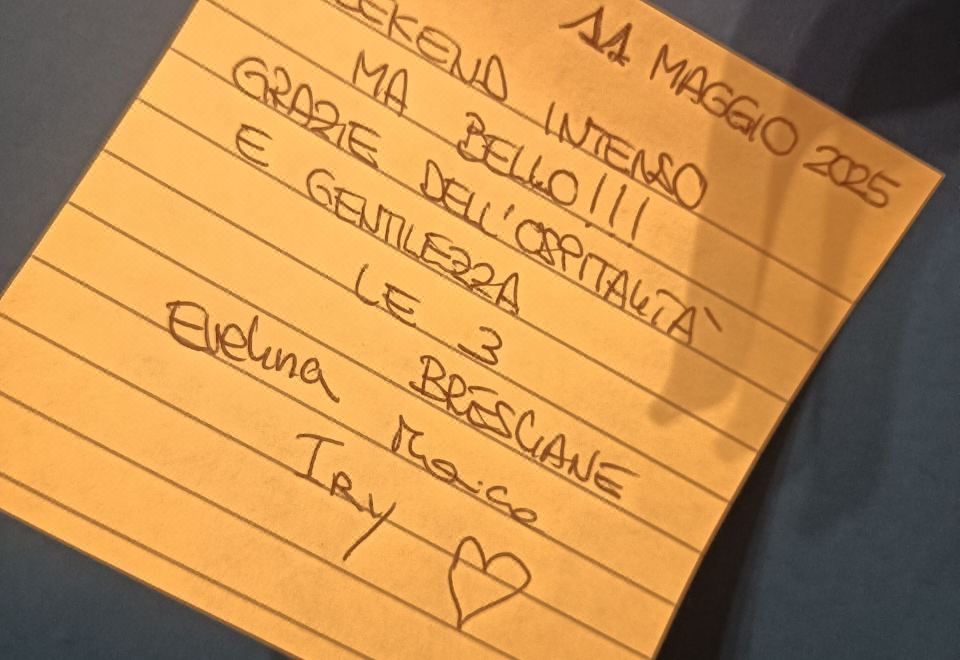 11 MAGGIO 2025
EKEND INTENSO
MA BELLO!!!
GRAZIE DELL'OSPITALITÀ
E GENTILEZZA
LE 3
BRESCIANE
Evelina
IRY ♡